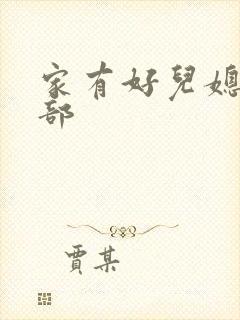 家有好兒媳
部
賈某